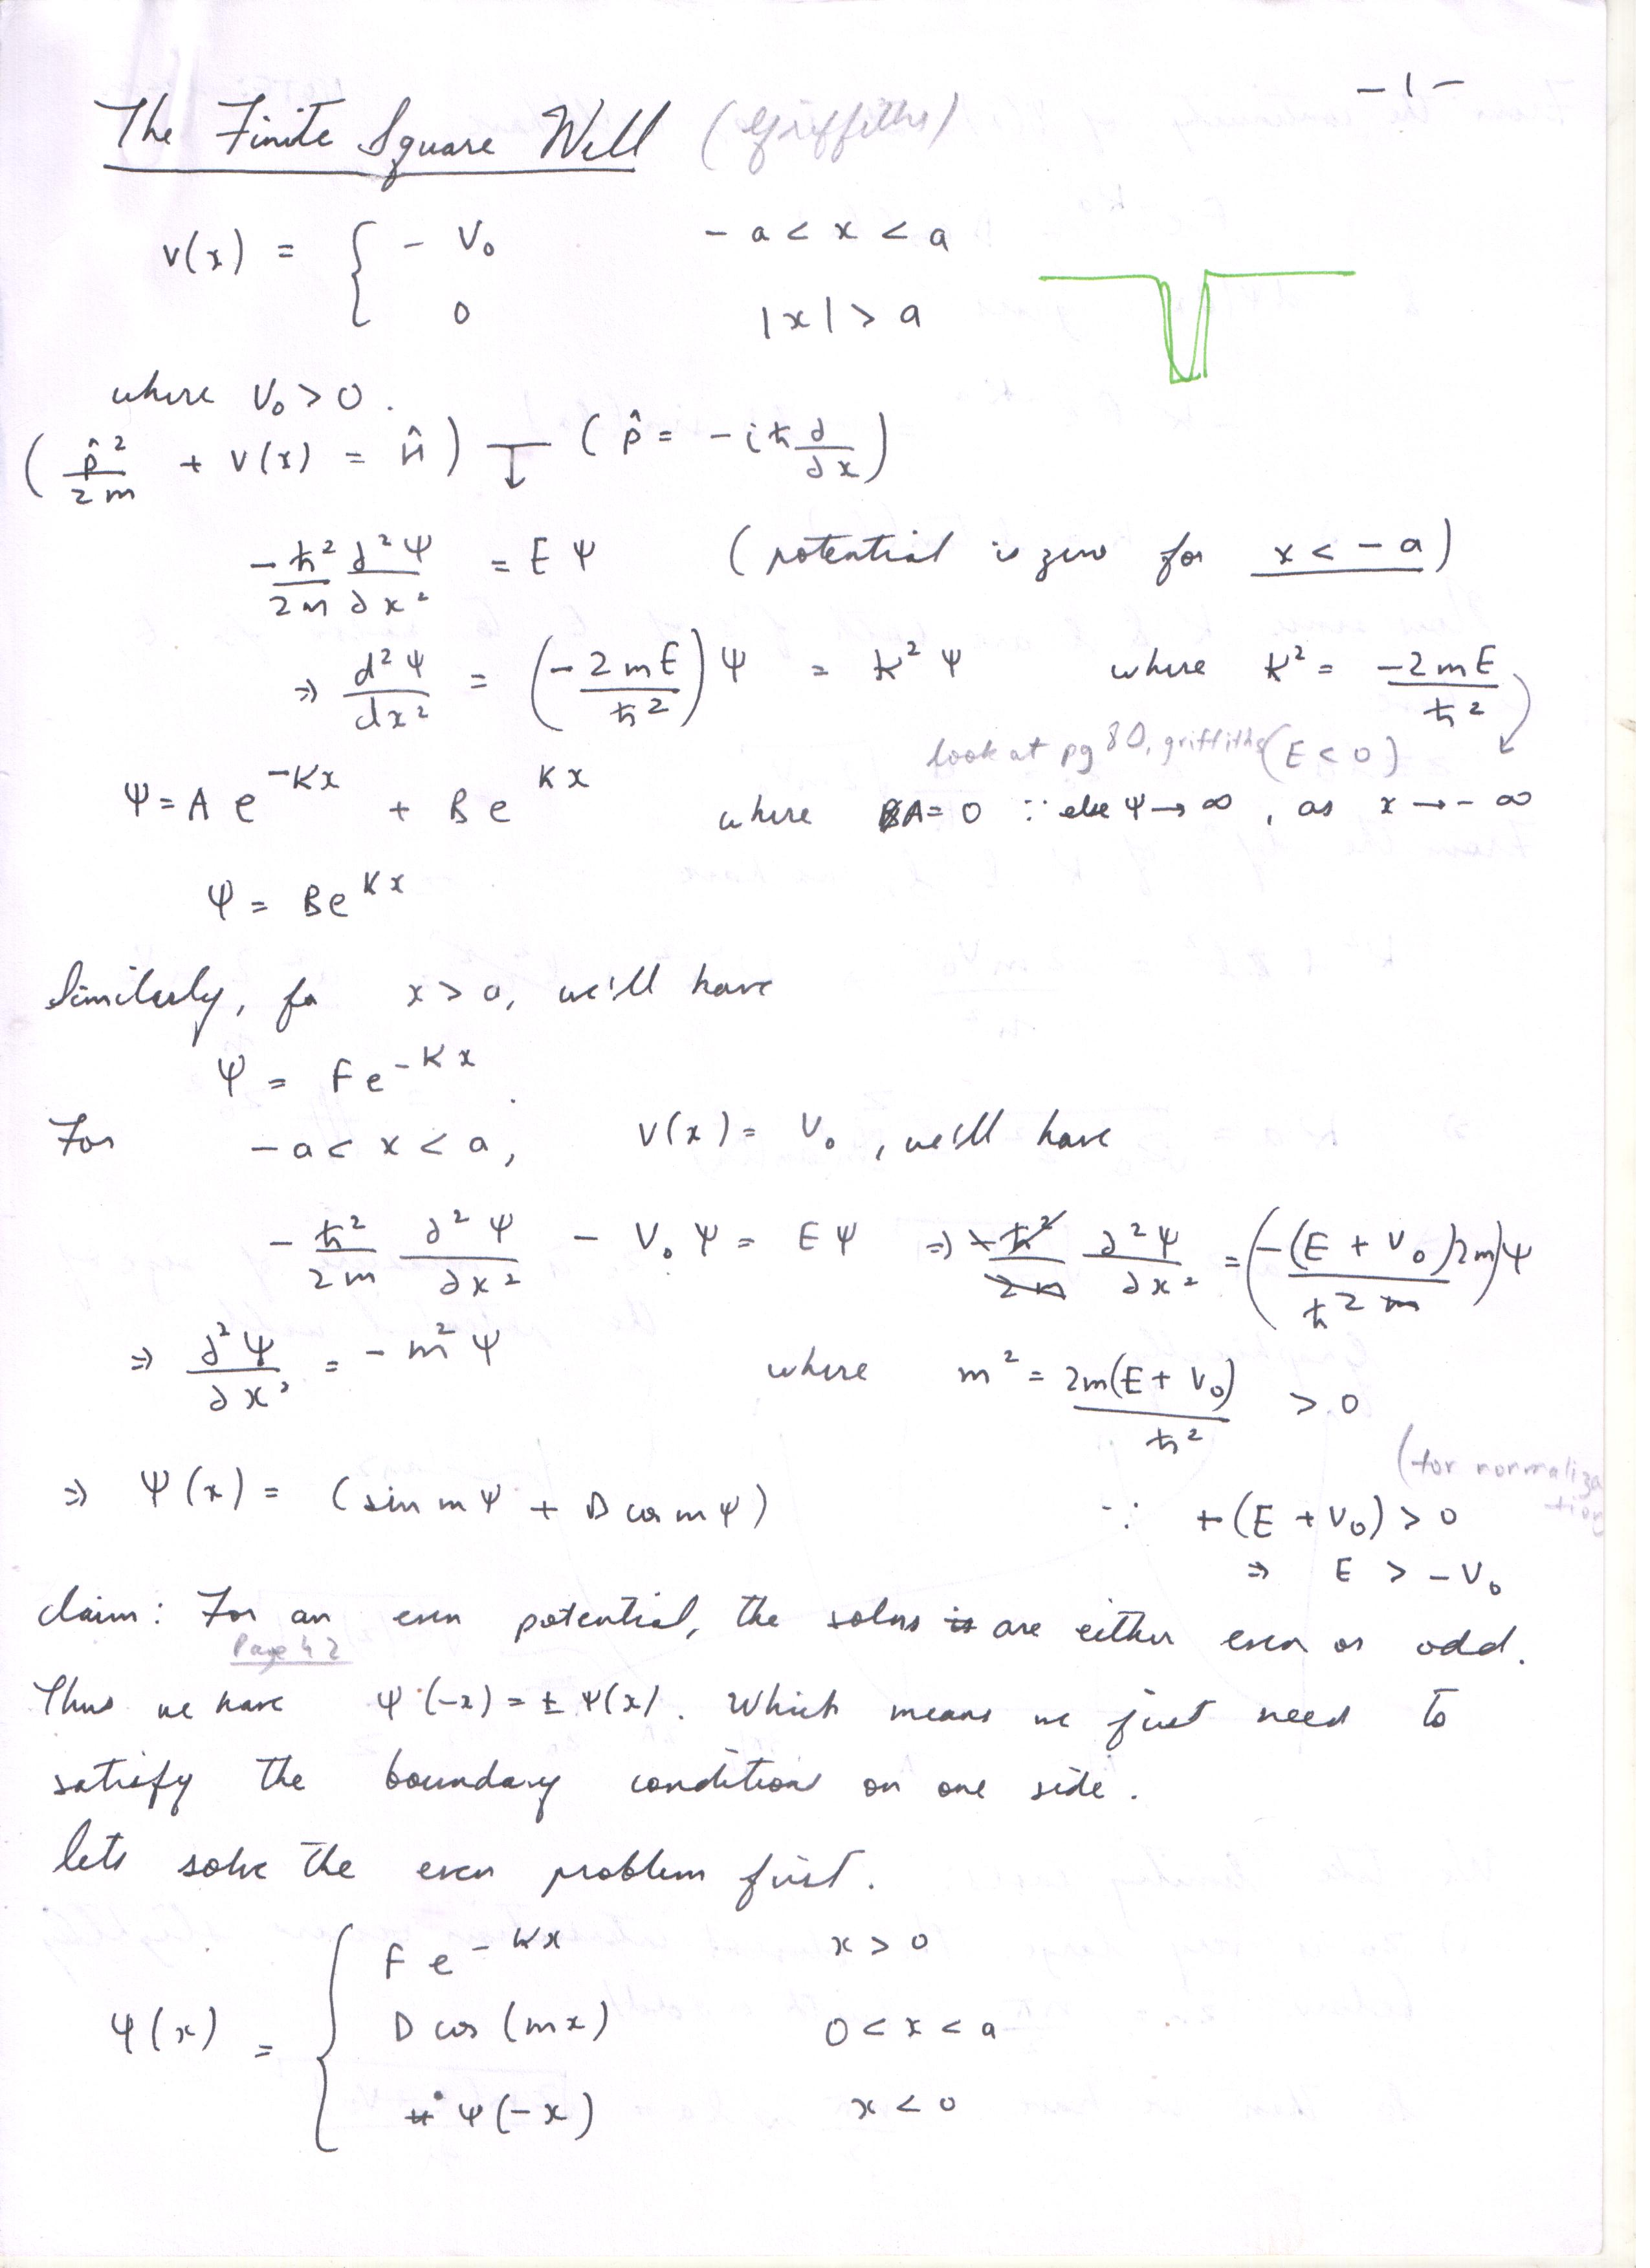 - 1 -
The Finite Square Well (Griffiths)
V(x) = { - V₀    - a < x < a
0    |x| > a
where V₀ > 0.
( p̂²/2m + V(x) = Ĥ ) ↓ ( p̂ = - iħ ∂/∂x )
-ħ²/2m ∂²Ψ/∂x² = E Ψ    (potential is zero for x < - a)
⇒ d²Ψ/dx² = (-2mE/ħ²) Ψ = k² Ψ    where k² = -2mE/ħ²
look at pg 80, griffiths (E < 0)
Ψ = A e^{-Kx} + B e^{Kx}    where A = 0 ∵ else Ψ → ∞, as x → - ∞
Ψ = B e^{Kx}
Similarly, for x > a, we'll have
Ψ = F e^{-Kx}.
For - a < x < a,    V(x) = V₀, we'll have
- ħ²/2m ∂²Ψ/∂x² - V₀ Ψ = E Ψ ⇒ -ħ²/2m ∂²Ψ/∂x² = (-(E + V₀)2m/ħ² m) Ψ
⇒ ∂²Ψ/∂x² = - m² Ψ    where m² = 2m(E + V₀)/ħ² > 0
(for normalization
⇒ Ψ(x) = (sin mΨ + D cos mΨ)    ∵ +(E + V₀) > 0
⇒ E > - V₀
Claim: For an even potential, the solns is are either even or odd.
Page 42
Thus we have Ψ(-x) = ± Ψ(x). Which means we just need to
satisfy the boundary conditions on one side.
lets solve the even problem first.
Ψ(x) = { F e^{-Kx}    x > 0
D cos (mx)    0 < x < a
Ψ(-x)    x < 0